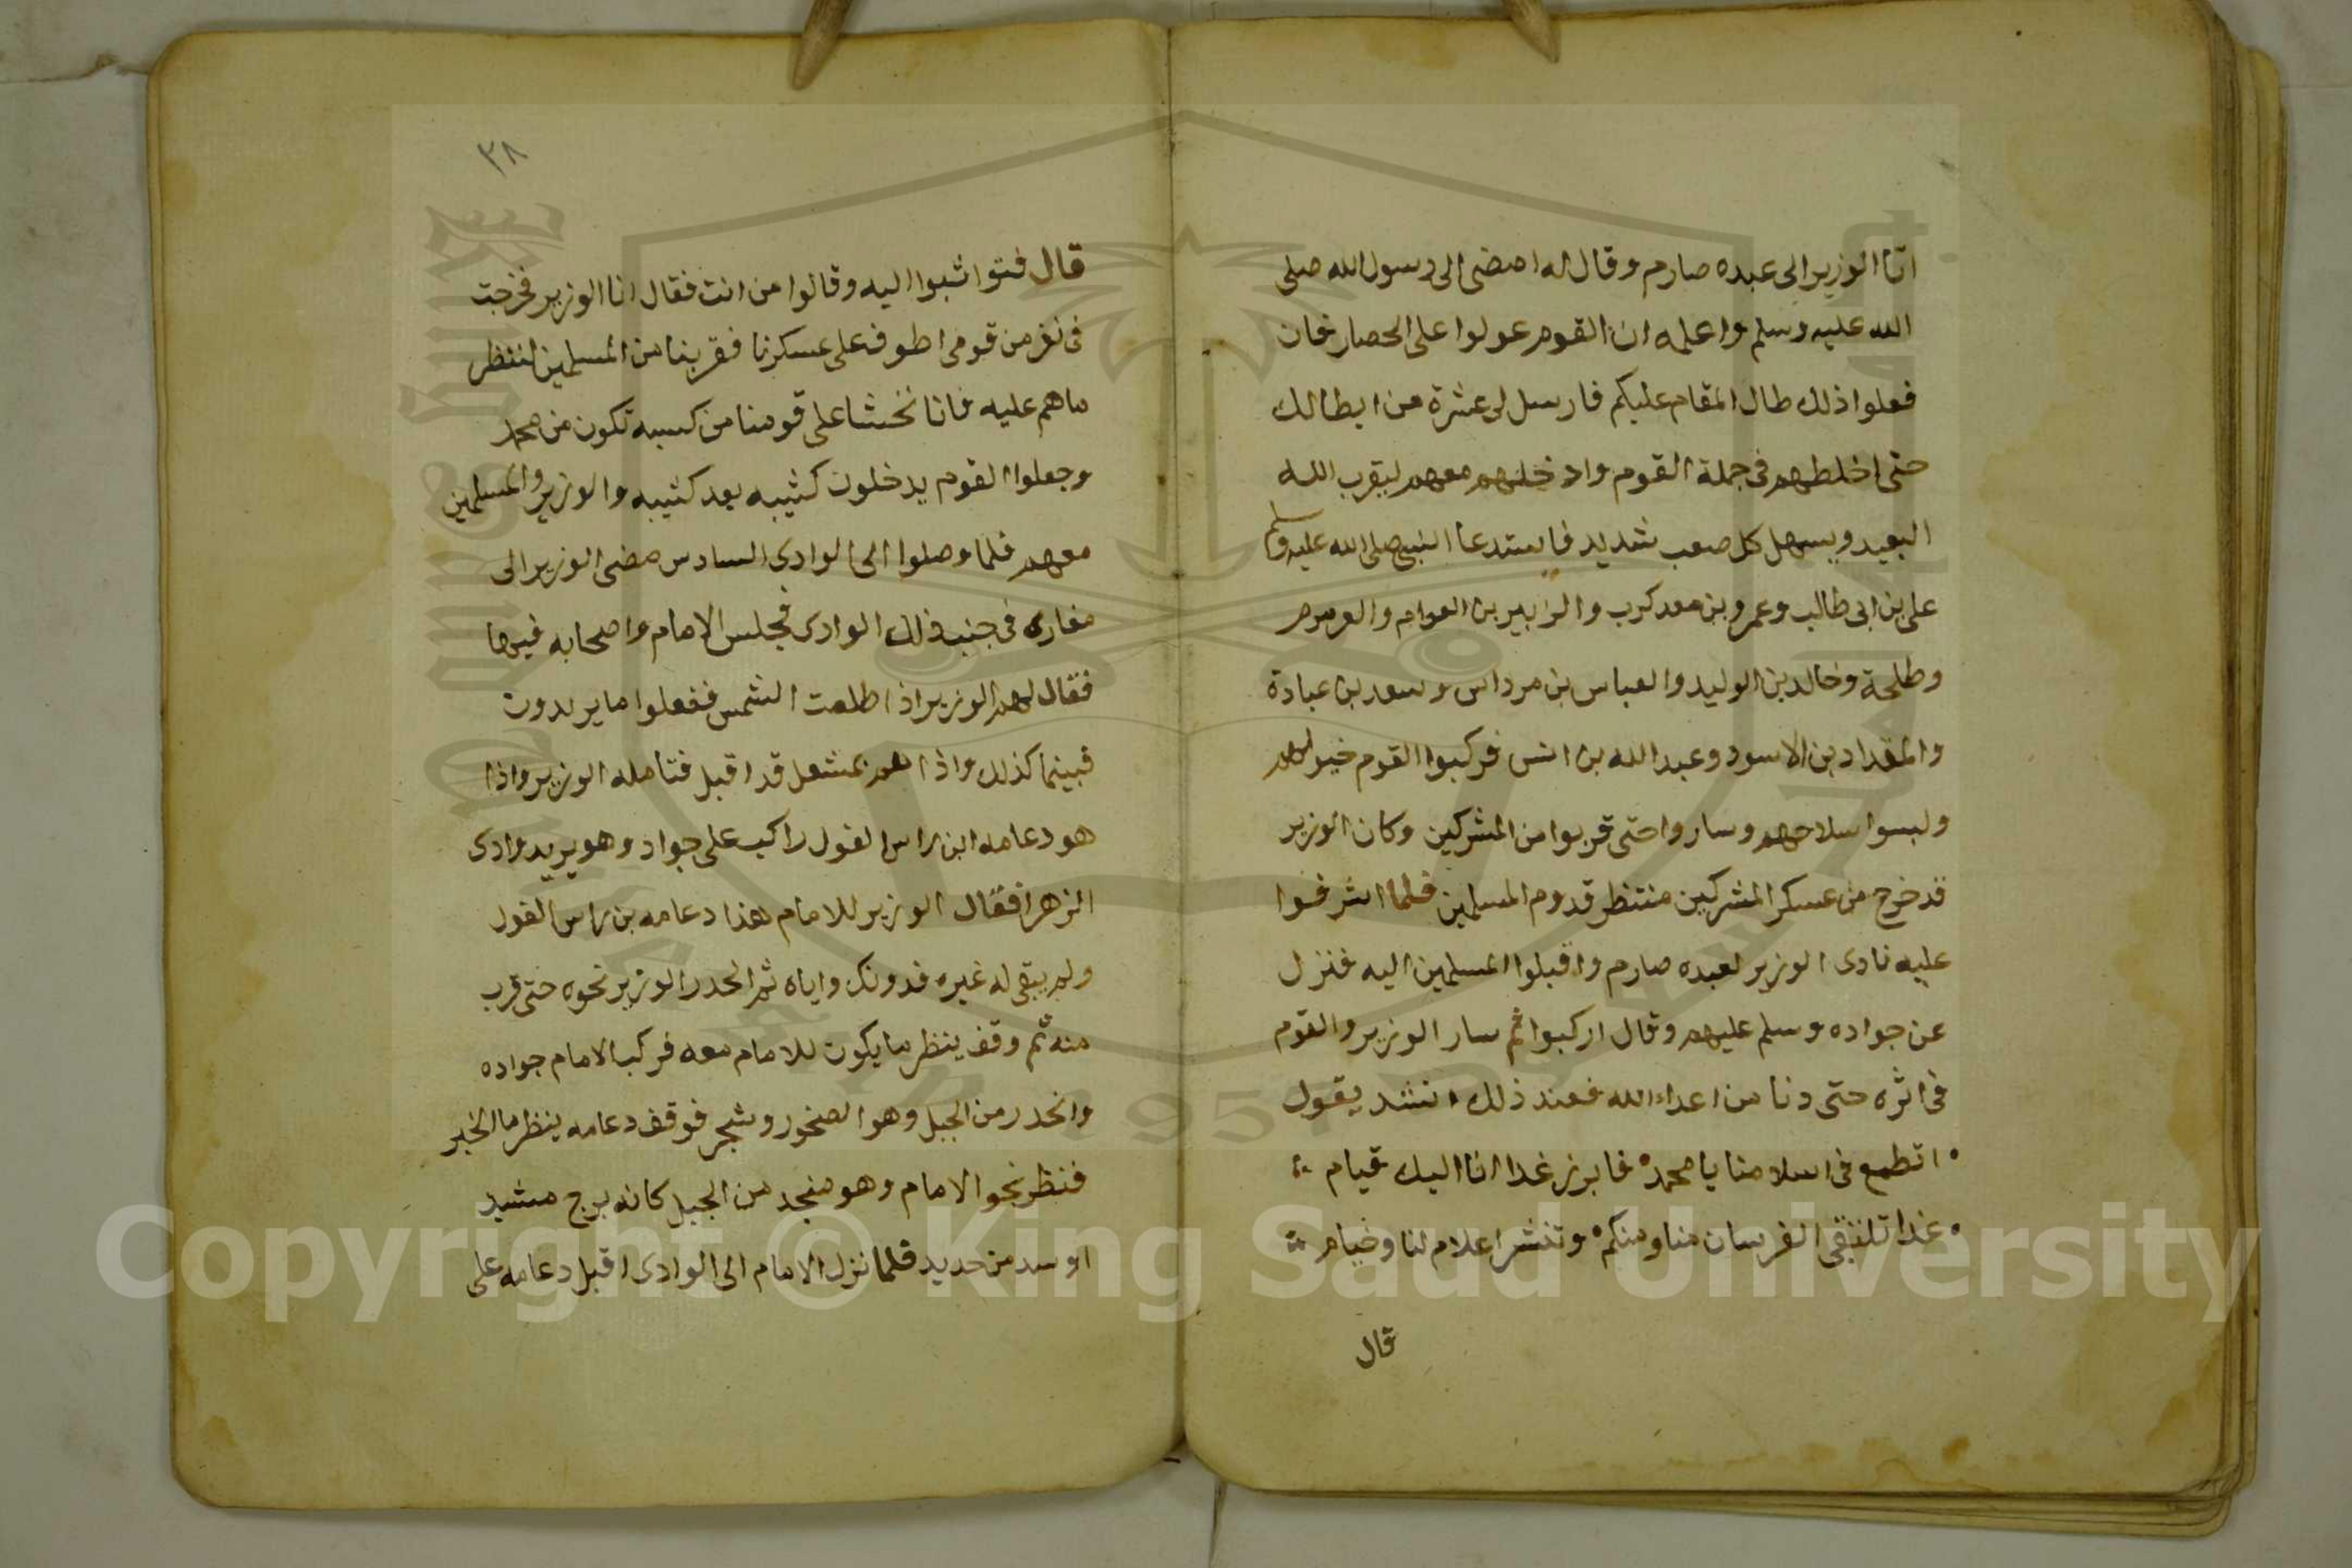 اتا الوزير الى عبده صارم وقال له امضى الى رسول الله صلى
الله عليه وسلم واعلمه ان القوم عولوا على الحصار فان
فعلوا ذلك طال المقام عليكم فارسل لى عشرة من ابطالك
حتى اخلطهم فى جملة القوم وادخلهم معهم ليقرب الله
البعيد ويسهل كل صعب شديد فاستدعا النبي صلى الله عليه وسلم
على بن ابى طالب وعمرو بن معد كرب والزبير بن العوام والعرمرم
وطلحة وخالد بن الوليد والعباس بن مرداس وسعد بن عبادة
والمقداد بن الاسود وعبد الله بن انس فركبوا القوم خيولهم
ولبسوا سلاحهم وساروا حتى قربوا من المشركين وكان الوزير
قد خرج من عسكر المشركين منتظر قدوم المسلمين فلما اشرفوا
عليه نادى الوزير لعبده صارم واقبلوا المسلمين اليه فنزل
عن جواده وسلم عليهم وقال اركبوا ثم سار الوزير والقوم
فى اثره حتى دنا من اعداء الله فعند ذلك انشد يقول
اتطمع فى اسلامنا يا محمد فابرز غدا انا اليك قيام
غدا تلتقى الفرسان منا ومنكم وتنشر اعلام لنا وخيام
قال
٣٨
قال فتواثبوا اليه وقالوا من انت فقال انا الوزير فخرجت
فى نفر من قومى اطوف على عسكرنا فقربنا من المسلمين لننظر
ما هم عليه فانا نخشا على قومنا من كبسه تكون من محمد
وجعلوا القوم يدخلون كثيبه بعد كثيبه والوزير والمسلمين
معهم فلما وصلوا الى الوادى السادس مضى الوزير الى
مغاره فى جنب ذلك الوادى فجلس الامام واصحابه فيها
فقال لهم الوزير اذا طلعت الشمس ففعلوا ما يريدون
فبينما كذلك واذا هم بمشعل قد اقبل فتامله الوزير واذا
هو دعامه ابن راس الغول راكب على جواد وهو يريد وادى
الزهرا فقال الوزير للامام هذا دعامه بن راس الغول
ولم يبقى له غيره فدونك واياه ثم انحدر الوزير نحوه حتى قرب
منه ثم وقف ينظر ما يكون للامام معه فركب الامام جواده
وانحدر من الجبل وهو الصخور وشجر فوقف دعامه ينظر ما الخبر
فنظر نحو الامام وهو منجد من الجبل كانه برج مشيد
او سد من حديد فلما نزل الامام الى الوادى اقبل دعامه على
Copyright © King Saud University